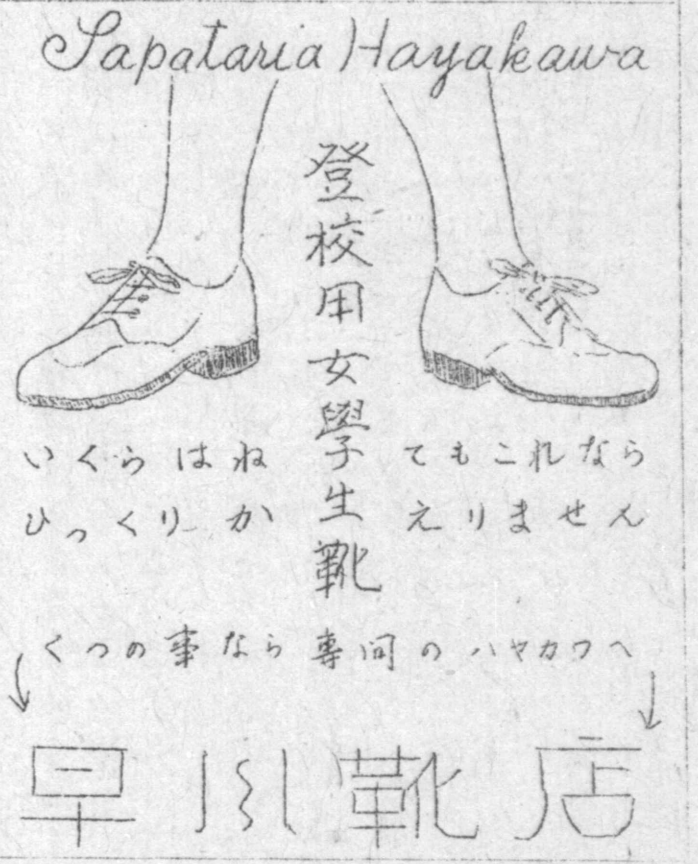 Sapataria Hayakawa
登校用女學生靴
いくらはねてもこれなら
ひっくりかえりません
くつの事なら専问のハヤカワへ
早川靴店